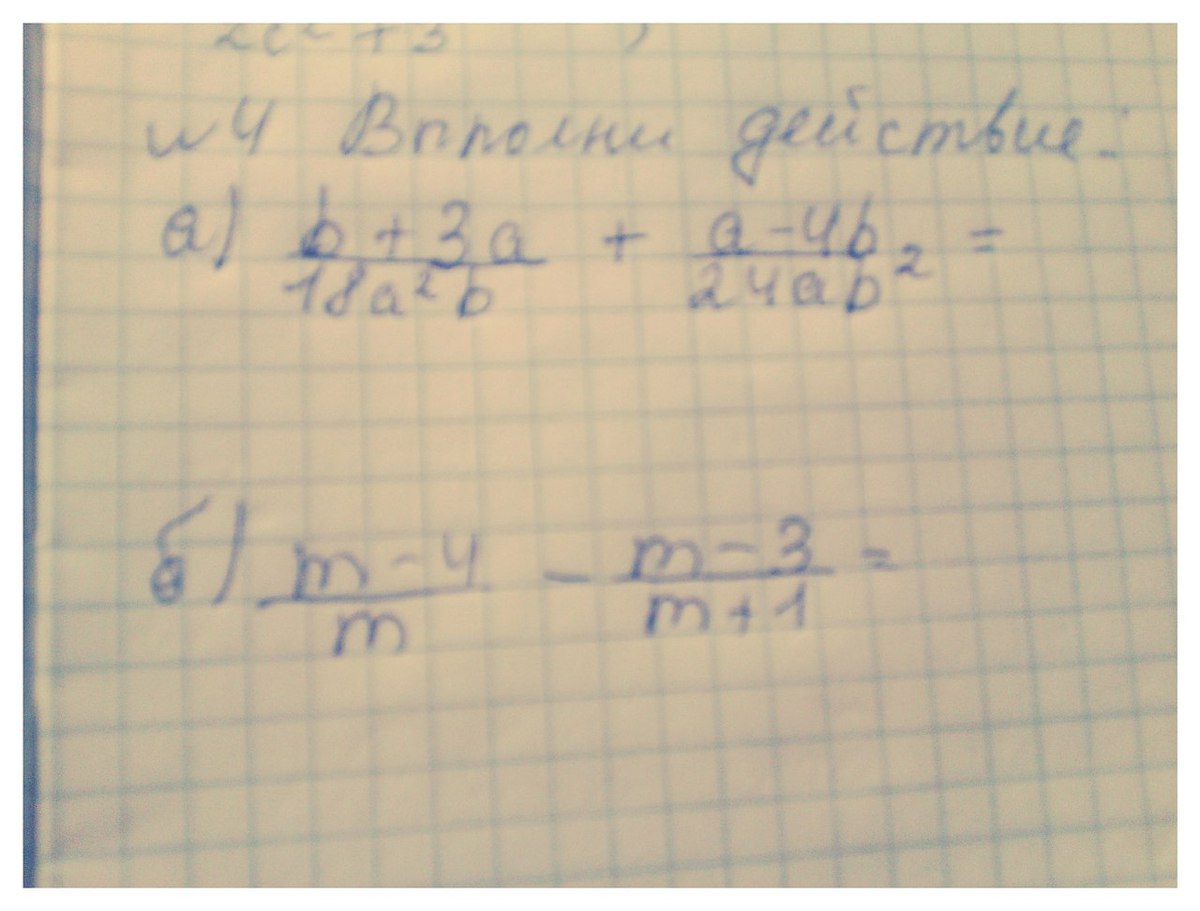 2c² + 3 )
№4 Вполни действие:
а) \frac{b + 3a}{18a²b} + \frac{a - 4b}{24ab²} =
б) \frac{m - 4}{m} - \frac{m - 3}{m + 1} =